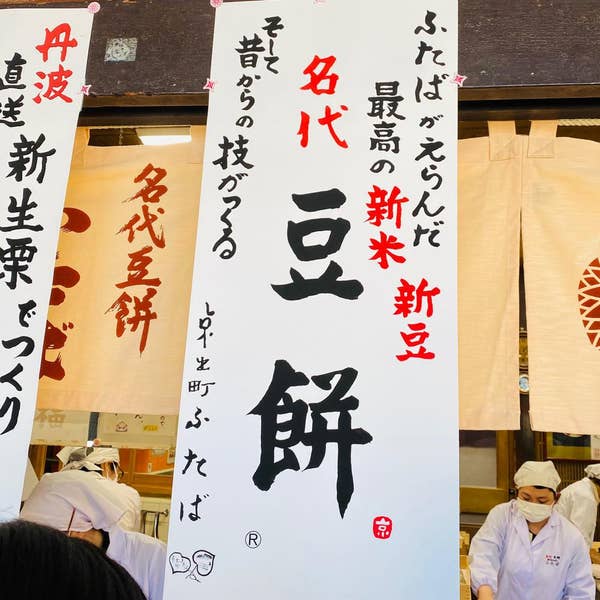 ふたばがえらんだ
最高の新米 新豆
名代
豆餅
そして
昔からの技がつくる
出町ふたば
®
京
丹波
直送
新生栗でつくり
名代豆餅